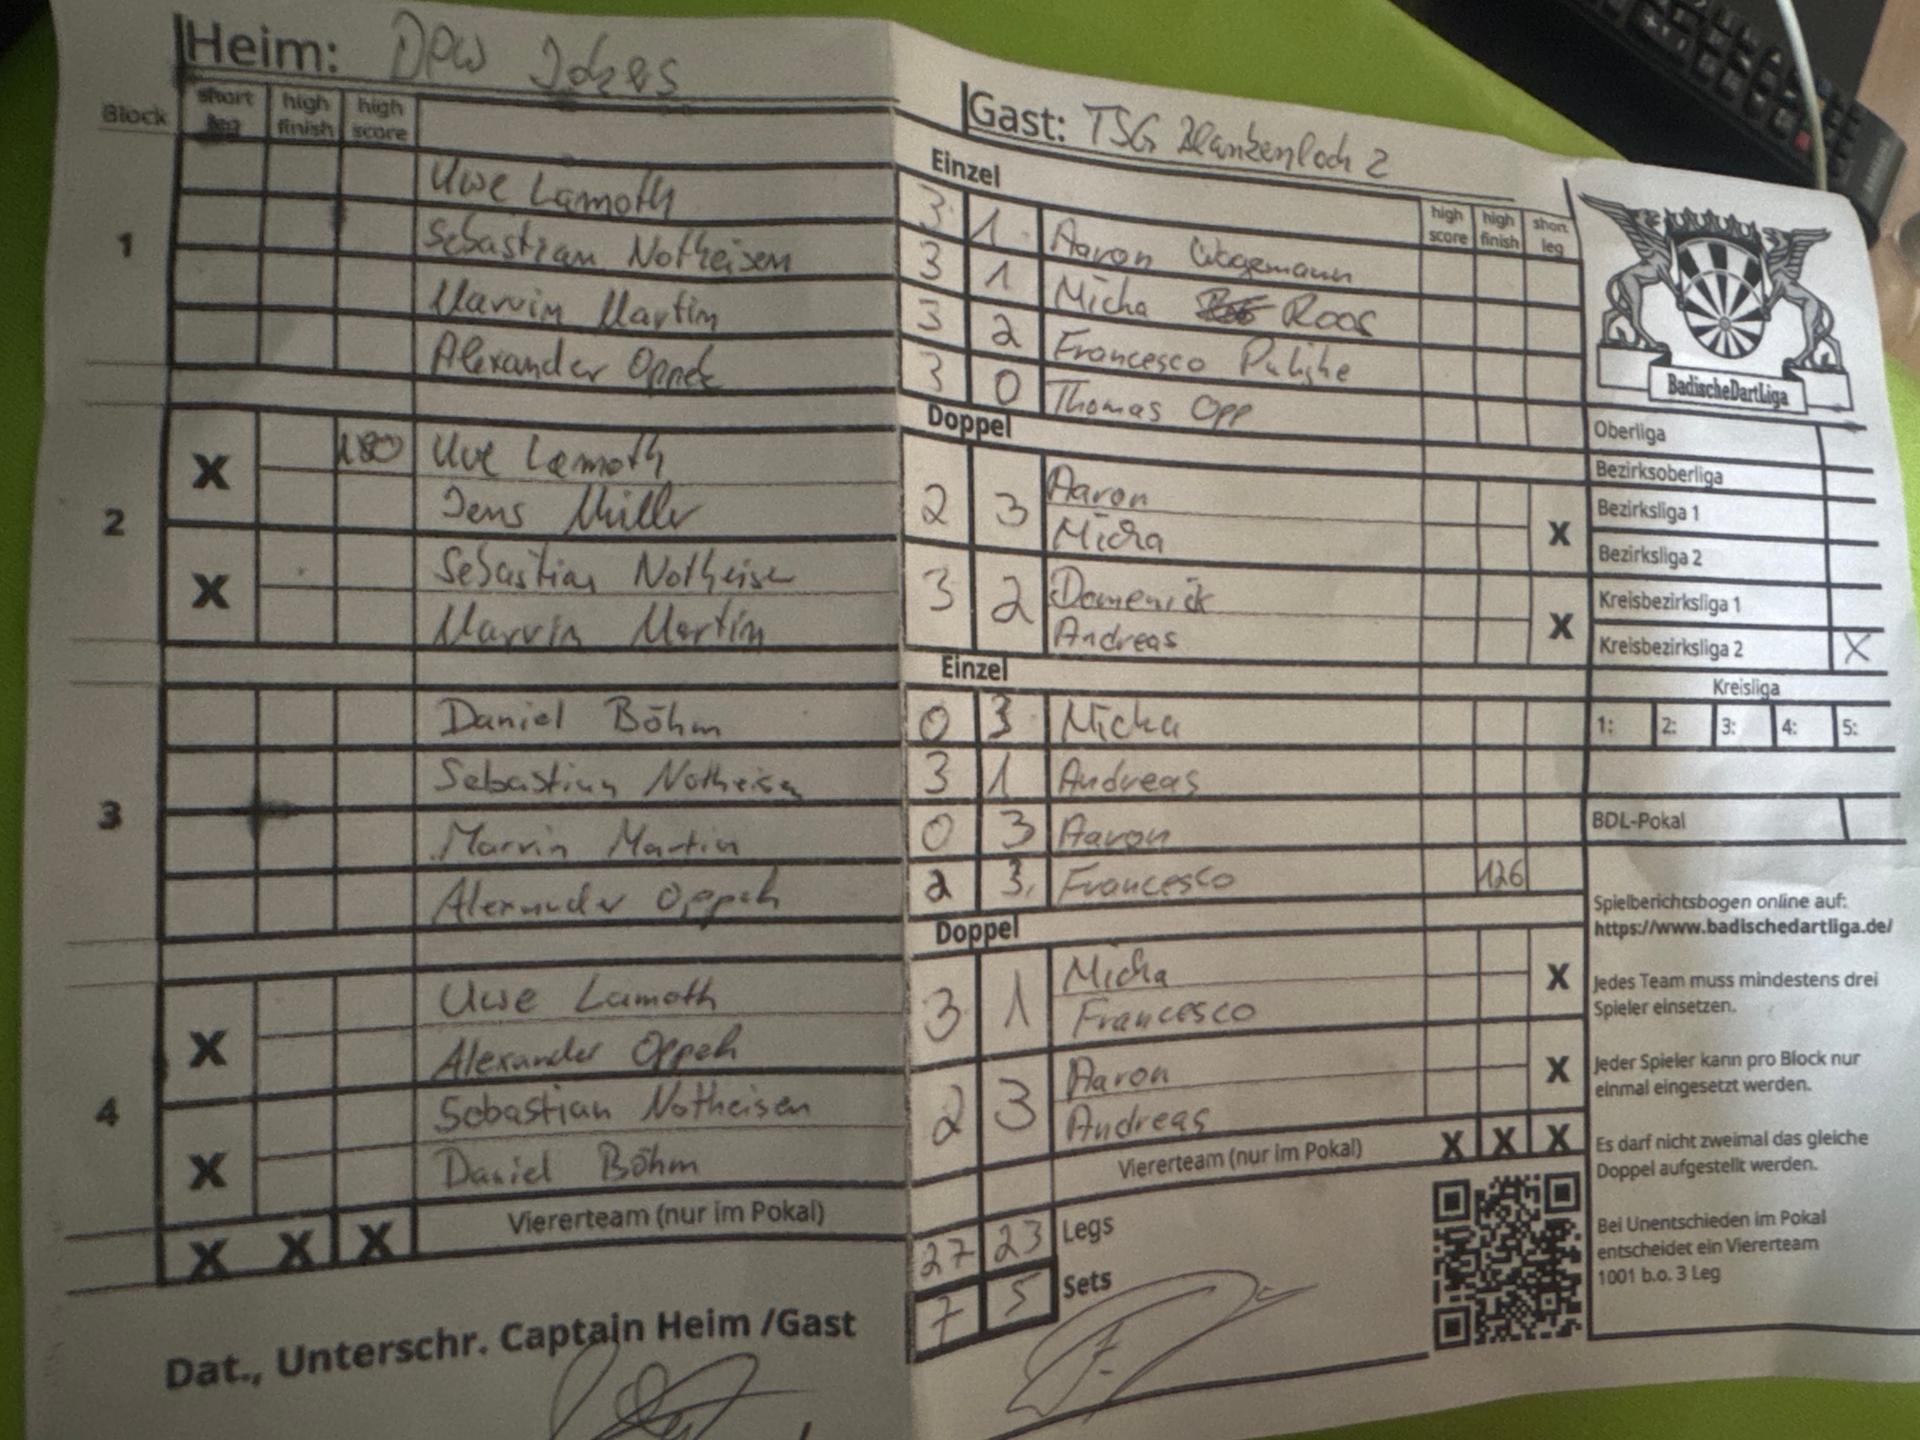 Heim: DPW Jokers
Gast: TSG Blankenloch 2
Block short leg high finish high score
Einzel
high score high finish short leg
1
Uwe Lamoth 3 1 Aaron Wagemann
Sebastian Notheisen 3 1 Micha Roos
Marvin Martin 3 2 Francesco Pulighe
Alexander Oppek 3 0 Thomas Opp
Doppel
2
X 180 Uwe Lamoth 2 3 Aaron X
Jens Müller Micha
X Sebastian Notheisen 3 2 Domenick X
Marvin Martin Andreas
Einzel
3
Daniel Böhm 0 3 Micha
Sebastian Notheisen 3 1 Andreas
Marvin Martin 0 3 Aaron
Alexander Oppek 2 3 Francesco 126
Doppel
4
X Uwe Lamoth 3 1 Micha X
Alexander Oppek Francesco
X Sebastian Notheisen 2 3 Aaron X
Daniel Böhm Andreas
X X X Viererteam (nur im Pokal) Viererteam (nur im Pokal) X X X
27 23 Legs
7 5 Sets
Dat., Unterschr. Captain Heim /Gast
BadischeDartLiga
Oberliga
Bezirksoberliga
Bezirksliga 1
Bezirksliga 2
Kreisbezirksliga 1
Kreisbezirksliga 2 X
Kreisliga
1: 2: 3: 4: 5:
BDL-Pokal
Spielberichtsbogen online auf:
https://www.badischedartliga.de/
Jedes Team muss mindestens drei
Spieler einsetzen.
Jeder Spieler kann pro Block nur
einmal eingesetzt werden.
Es darf nicht zweimal das gleiche
Doppel aufgestellt werden.
Bei Unentschieden im Pokal
entscheidet ein Viererteam
1001 b.o. 3 Leg